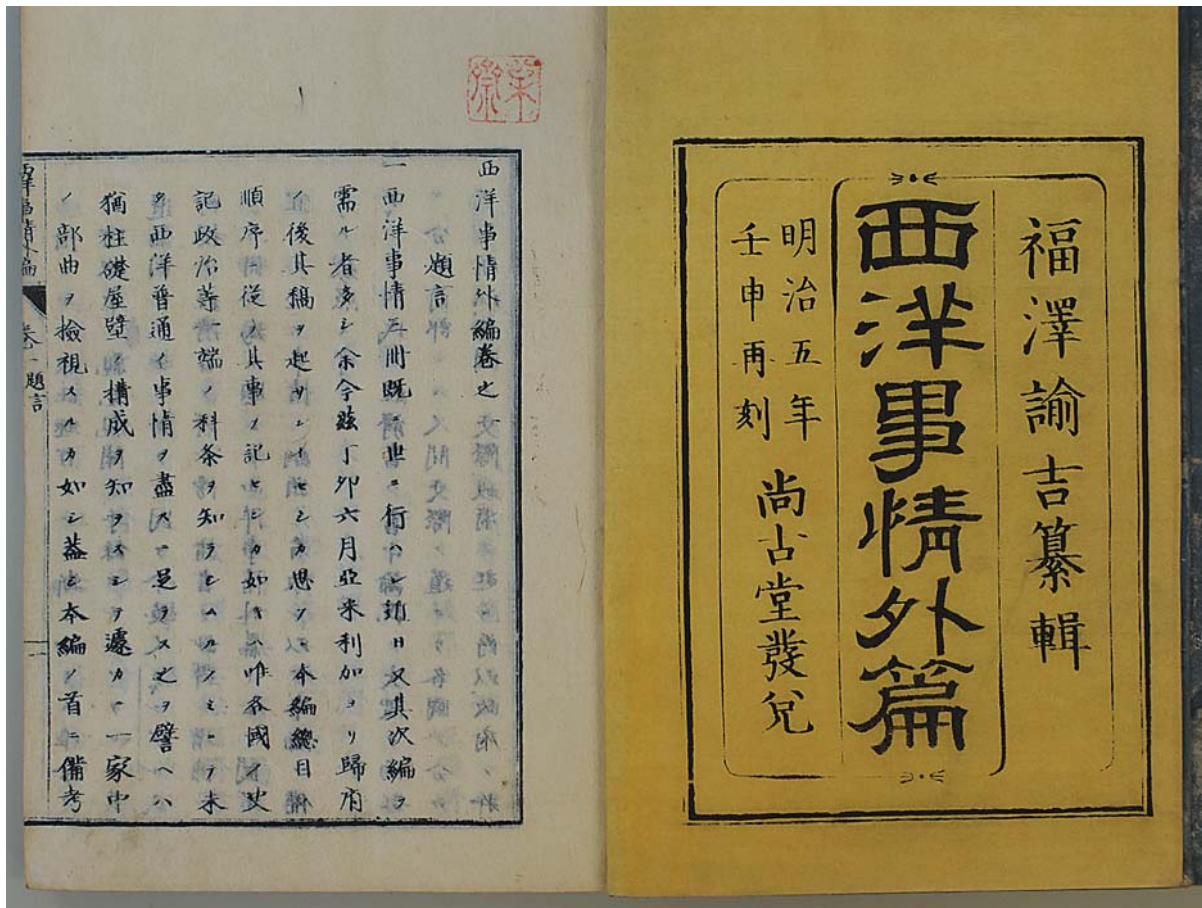 福澤諭吉纂輯
西洋事情外篇
明治五年
壬申再刻
尚古堂發兌
西洋事情外編卷之一
題言
一西洋事情三冊既ニ世ニ行ハレ頃日又其次編ヲ
需ル者多シ余今茲丁卯六月亞米利加ヨリ歸府
ノ後其稿ヲ起サントセシカ思フニ本編總目ノ
順序ニ從ヒ其事ヲ記センカ如キハ唯各國ノ史
記政治等一端ノ科条ヲ知ラシムルノミニテ未
タ西洋普通ノ事情ヲ盡スニ足ラス之ヲ譬ヘハ
猶柱礎屋壁ノ構成ヲ知ラスシテ遽カニ一家中
ノ部曲ヲ撿視スルカ如シ蓋シ本編ノ首ニ備考
西洋事情外編 卷一 題言